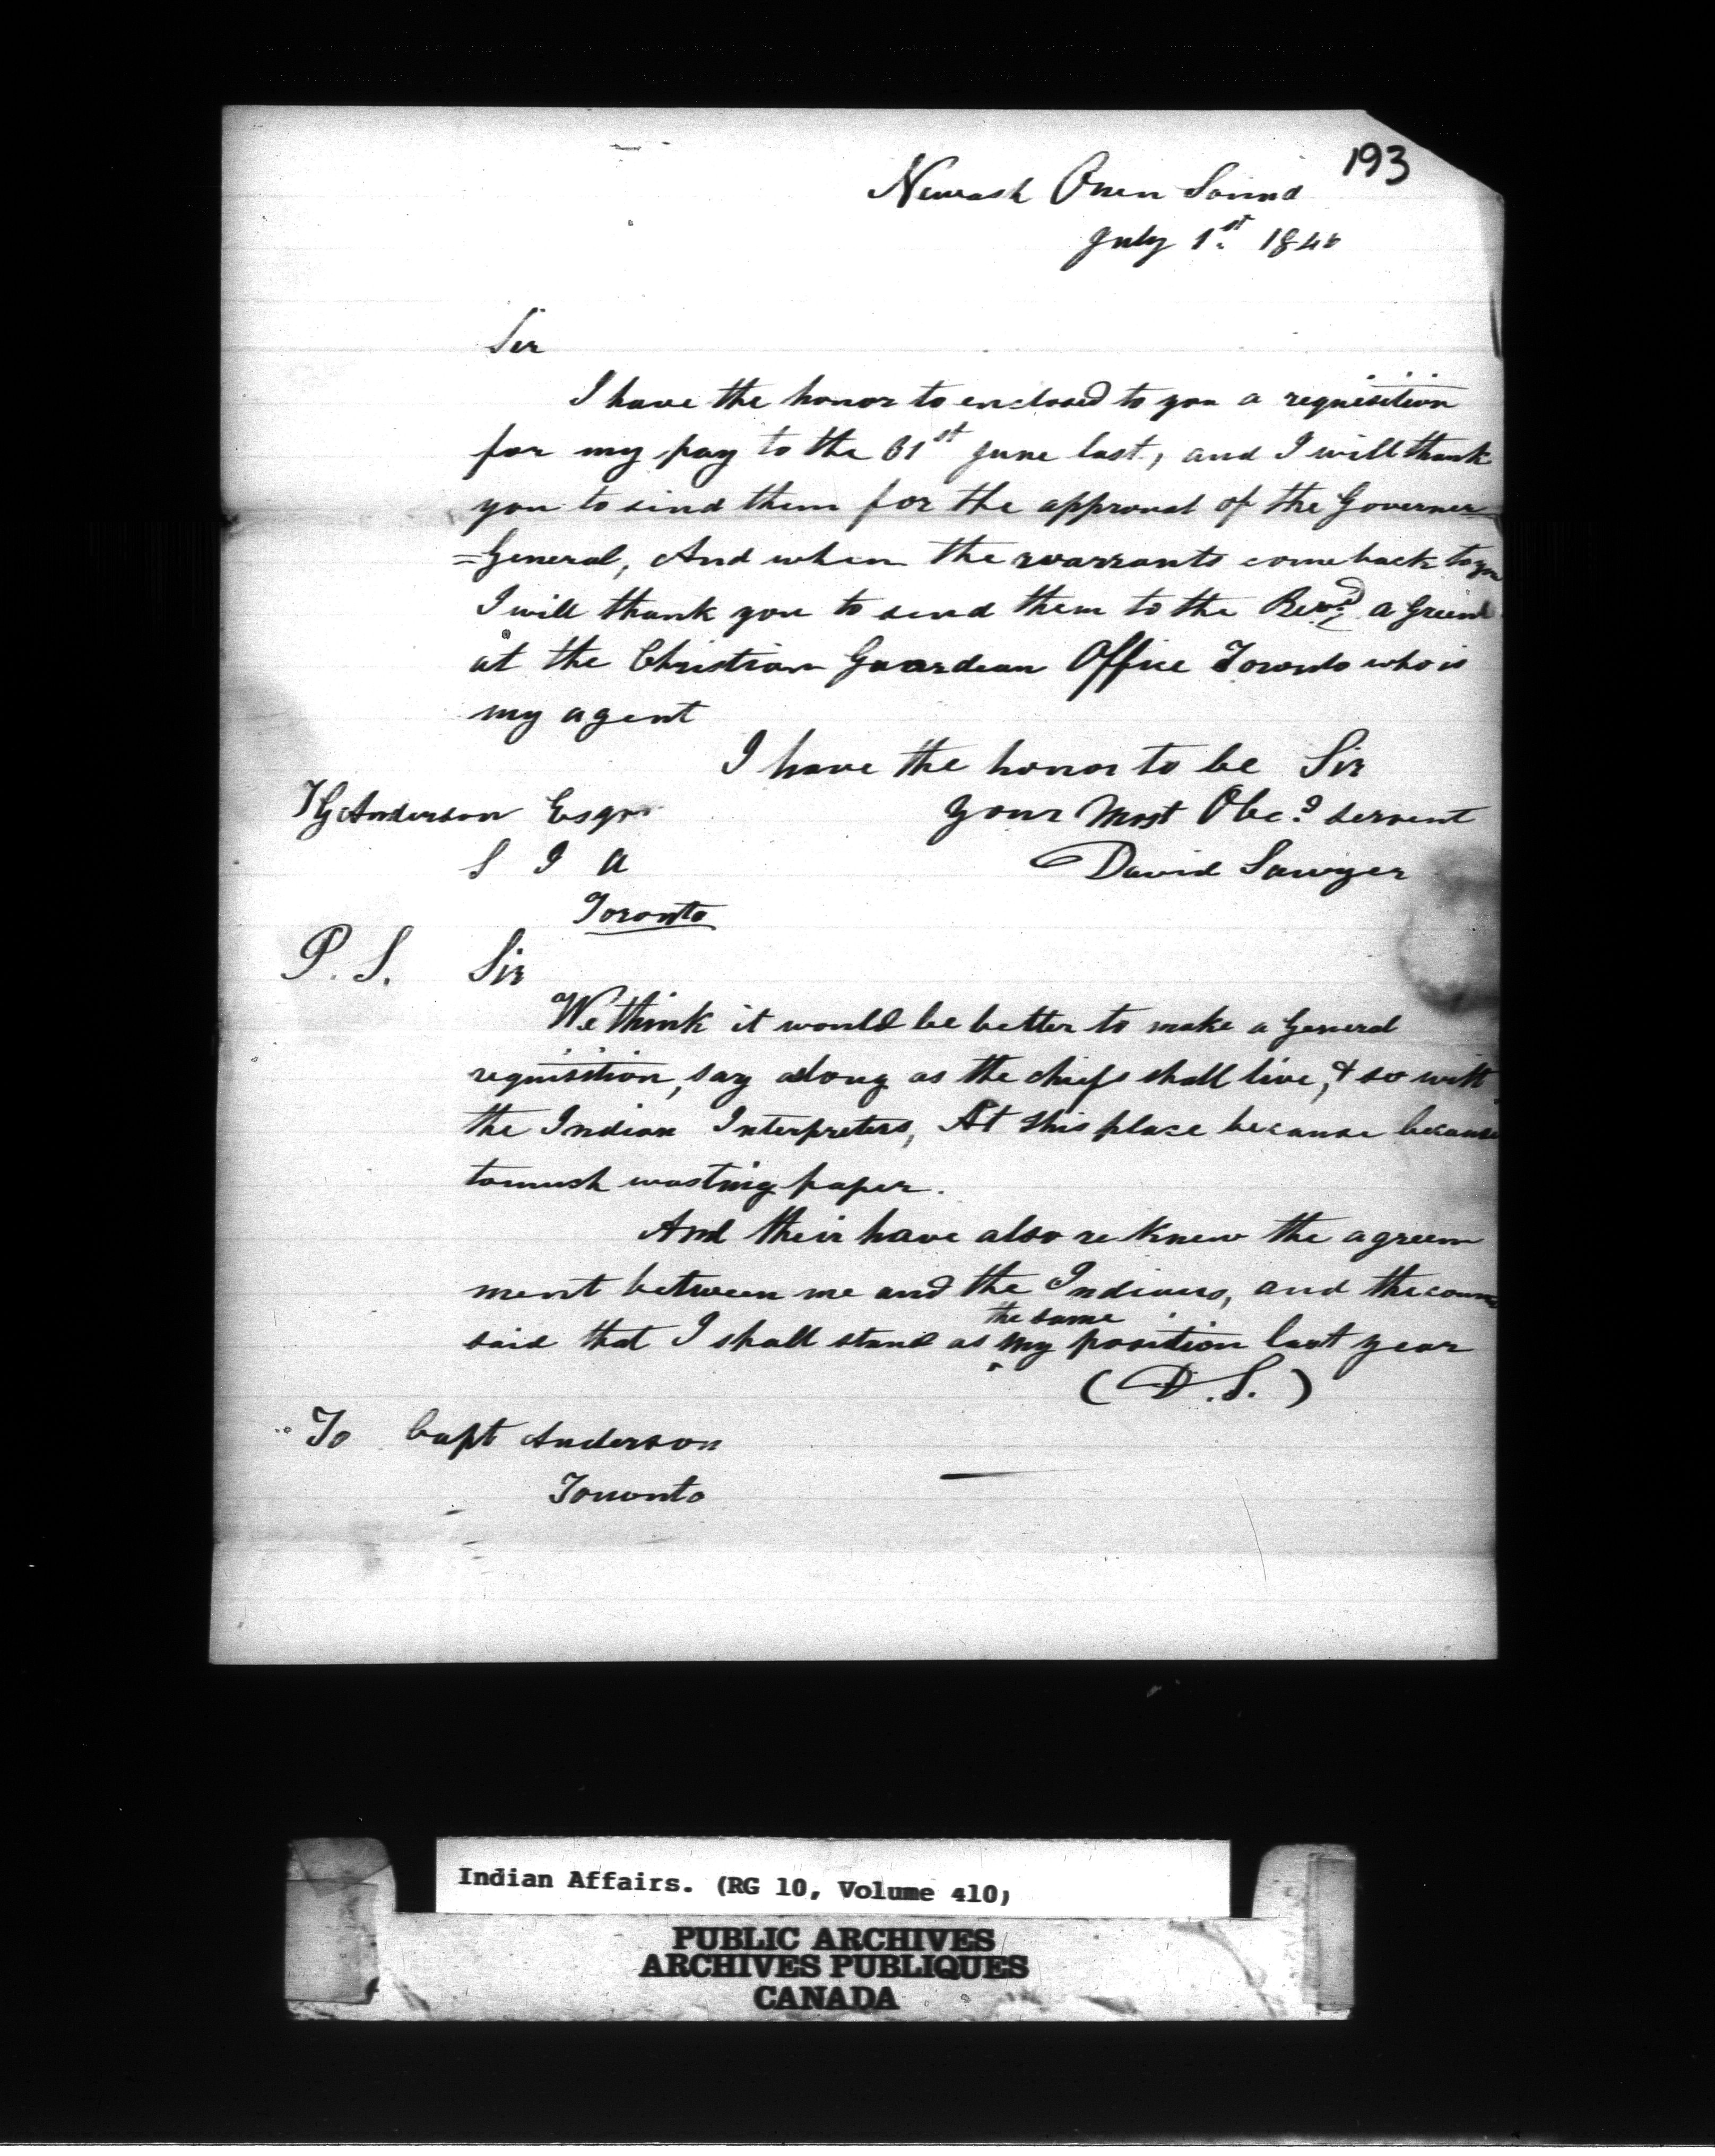 193
Newash Owen Sound
July 1st 1846
Sir
I have the honor to enclosed to you a requisition
for my pay to the 31st June last, and I will thank
you to send them for the approval of the Governer
=General, And when the warrants come back to you
I will thank you to send them to the Revd. A Green
at the Christian Guardean Office Toronto who is
my agent
I have the honor to be Sir
TG Anderson Esqr
your Most Obed servent
S I A
David Sawyer
Toronto
P. S. Sir
We think it would be better to make a General
requisition, say aslong as the chiefs shall live, & so with
the Indian Interpreters, At this place because because
tomush wasting paper.
And their have also re knew the agreem
ment between me and the Indians, and the
the same
said that I shall stand as my position last year
(D.S.)
To Capt Anderson
Toronto
Indian Affairs. (RG 10, Volume 410)
PUBLIC ARCHIVES
ARCHIVES PUBLIQUES
CANADA